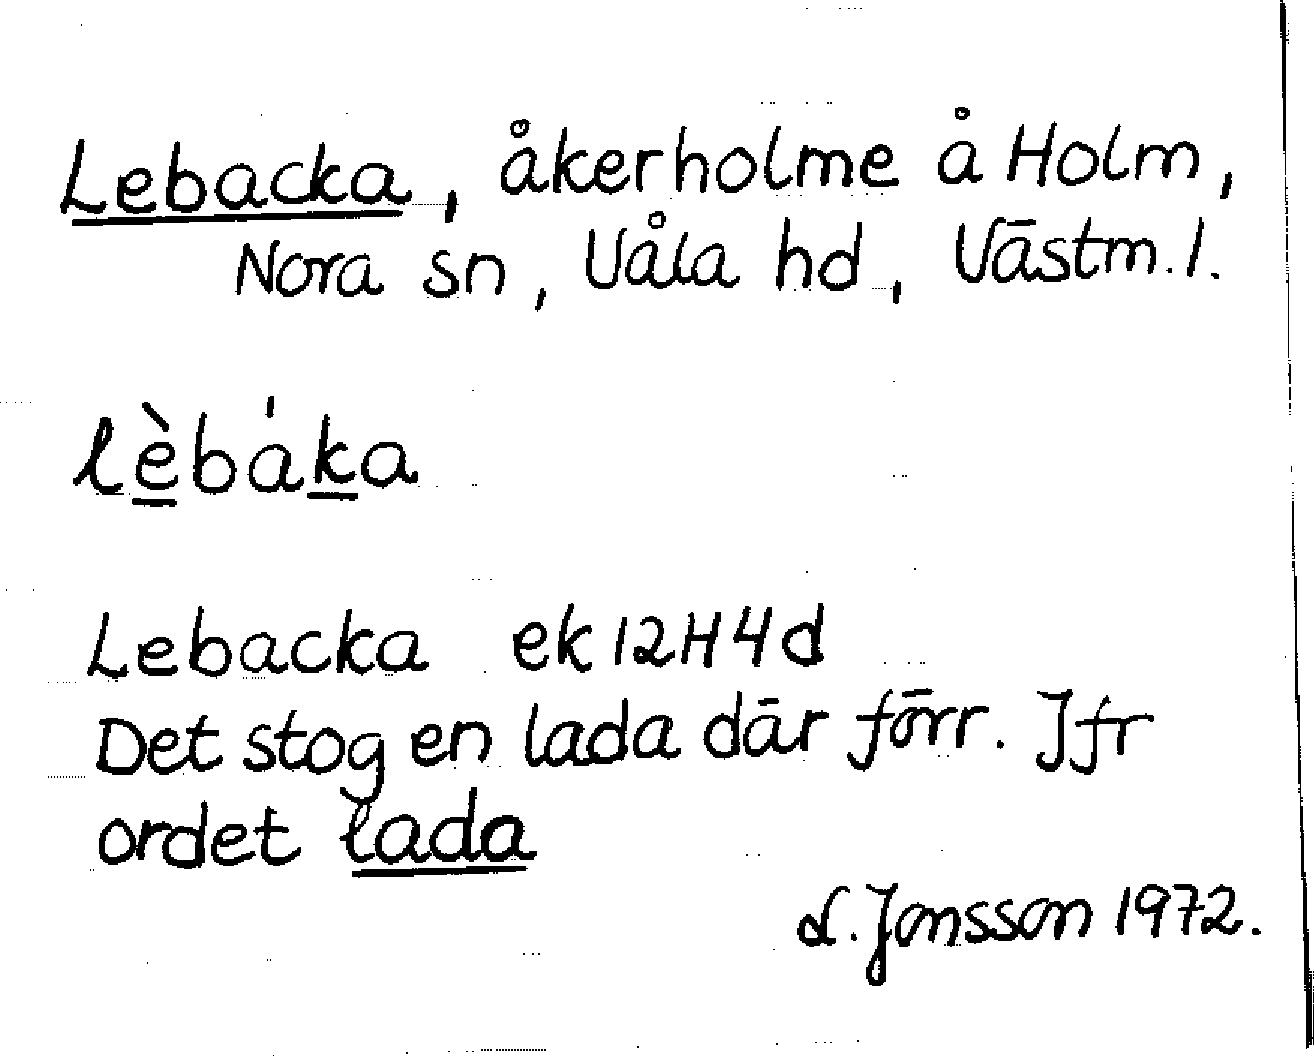 Lebacka, åkerholme å Holm,
Nora sn, Våla hd, Västm. l.
lèbáka
Lebacka ek 12H4d
Det stog en lada där förr. Jfr
ordet lada
L. Jonsson 1972.